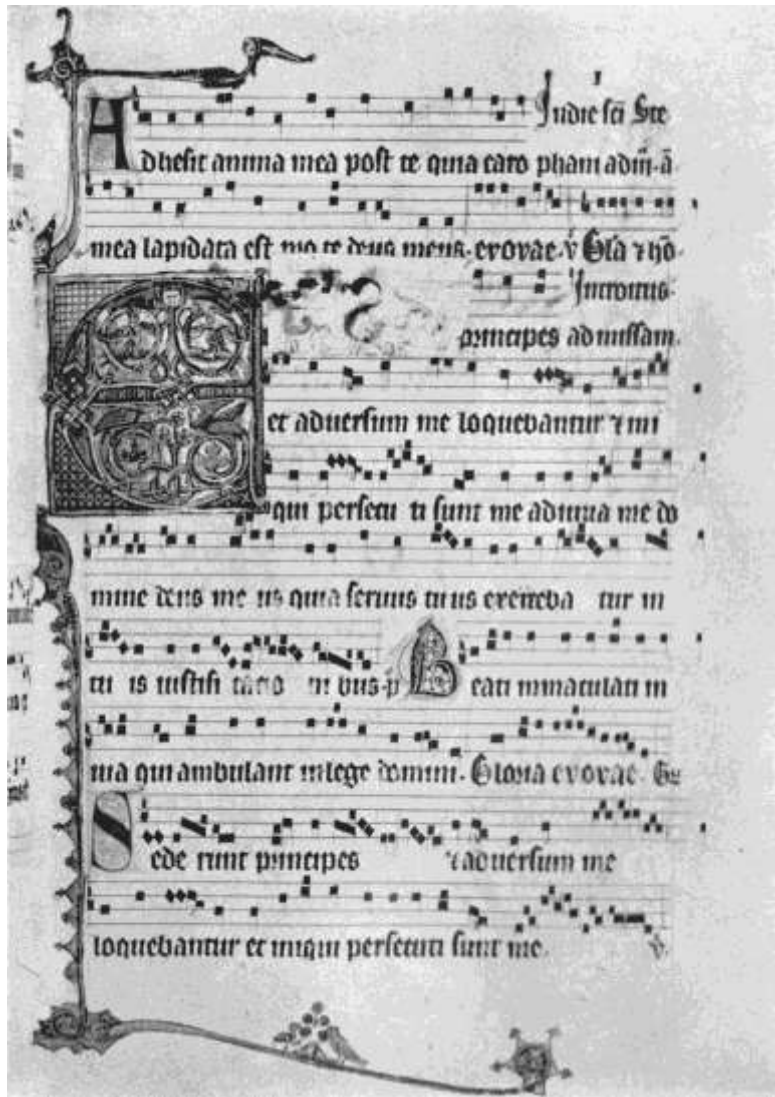 In die sci Ste
Adhesit anima mea post te quia caro phani adm̄. ā
mea lapidata est te deus meus. evovae. v̄ Gl̄a ⁊ hō
Introitus.
principes ad missam.
et adversum me loquebantur ⁊ ini
qui persecu ti sunt me adiuva me do
mine deus me us quia servus tuus exerceba tur in
tu is iustifi catio ni bus. p̄ Beati immaculati in
via qui ambulant in lege domini. Gloria evovae. Gr̄
Sede runt principes ⁊ adversum me
loquebantur et iniqui persecuti sunt me. v̄.